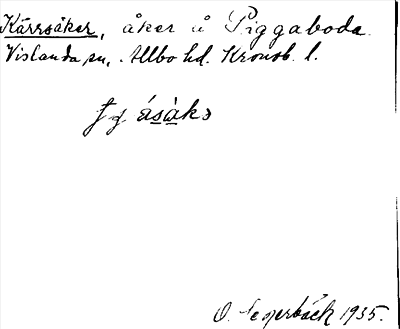 Kärrsåker, åker å Piggaboda
Vislanda sn, Allbo hd. Kronob. l.
O. Segerbäck 1935.